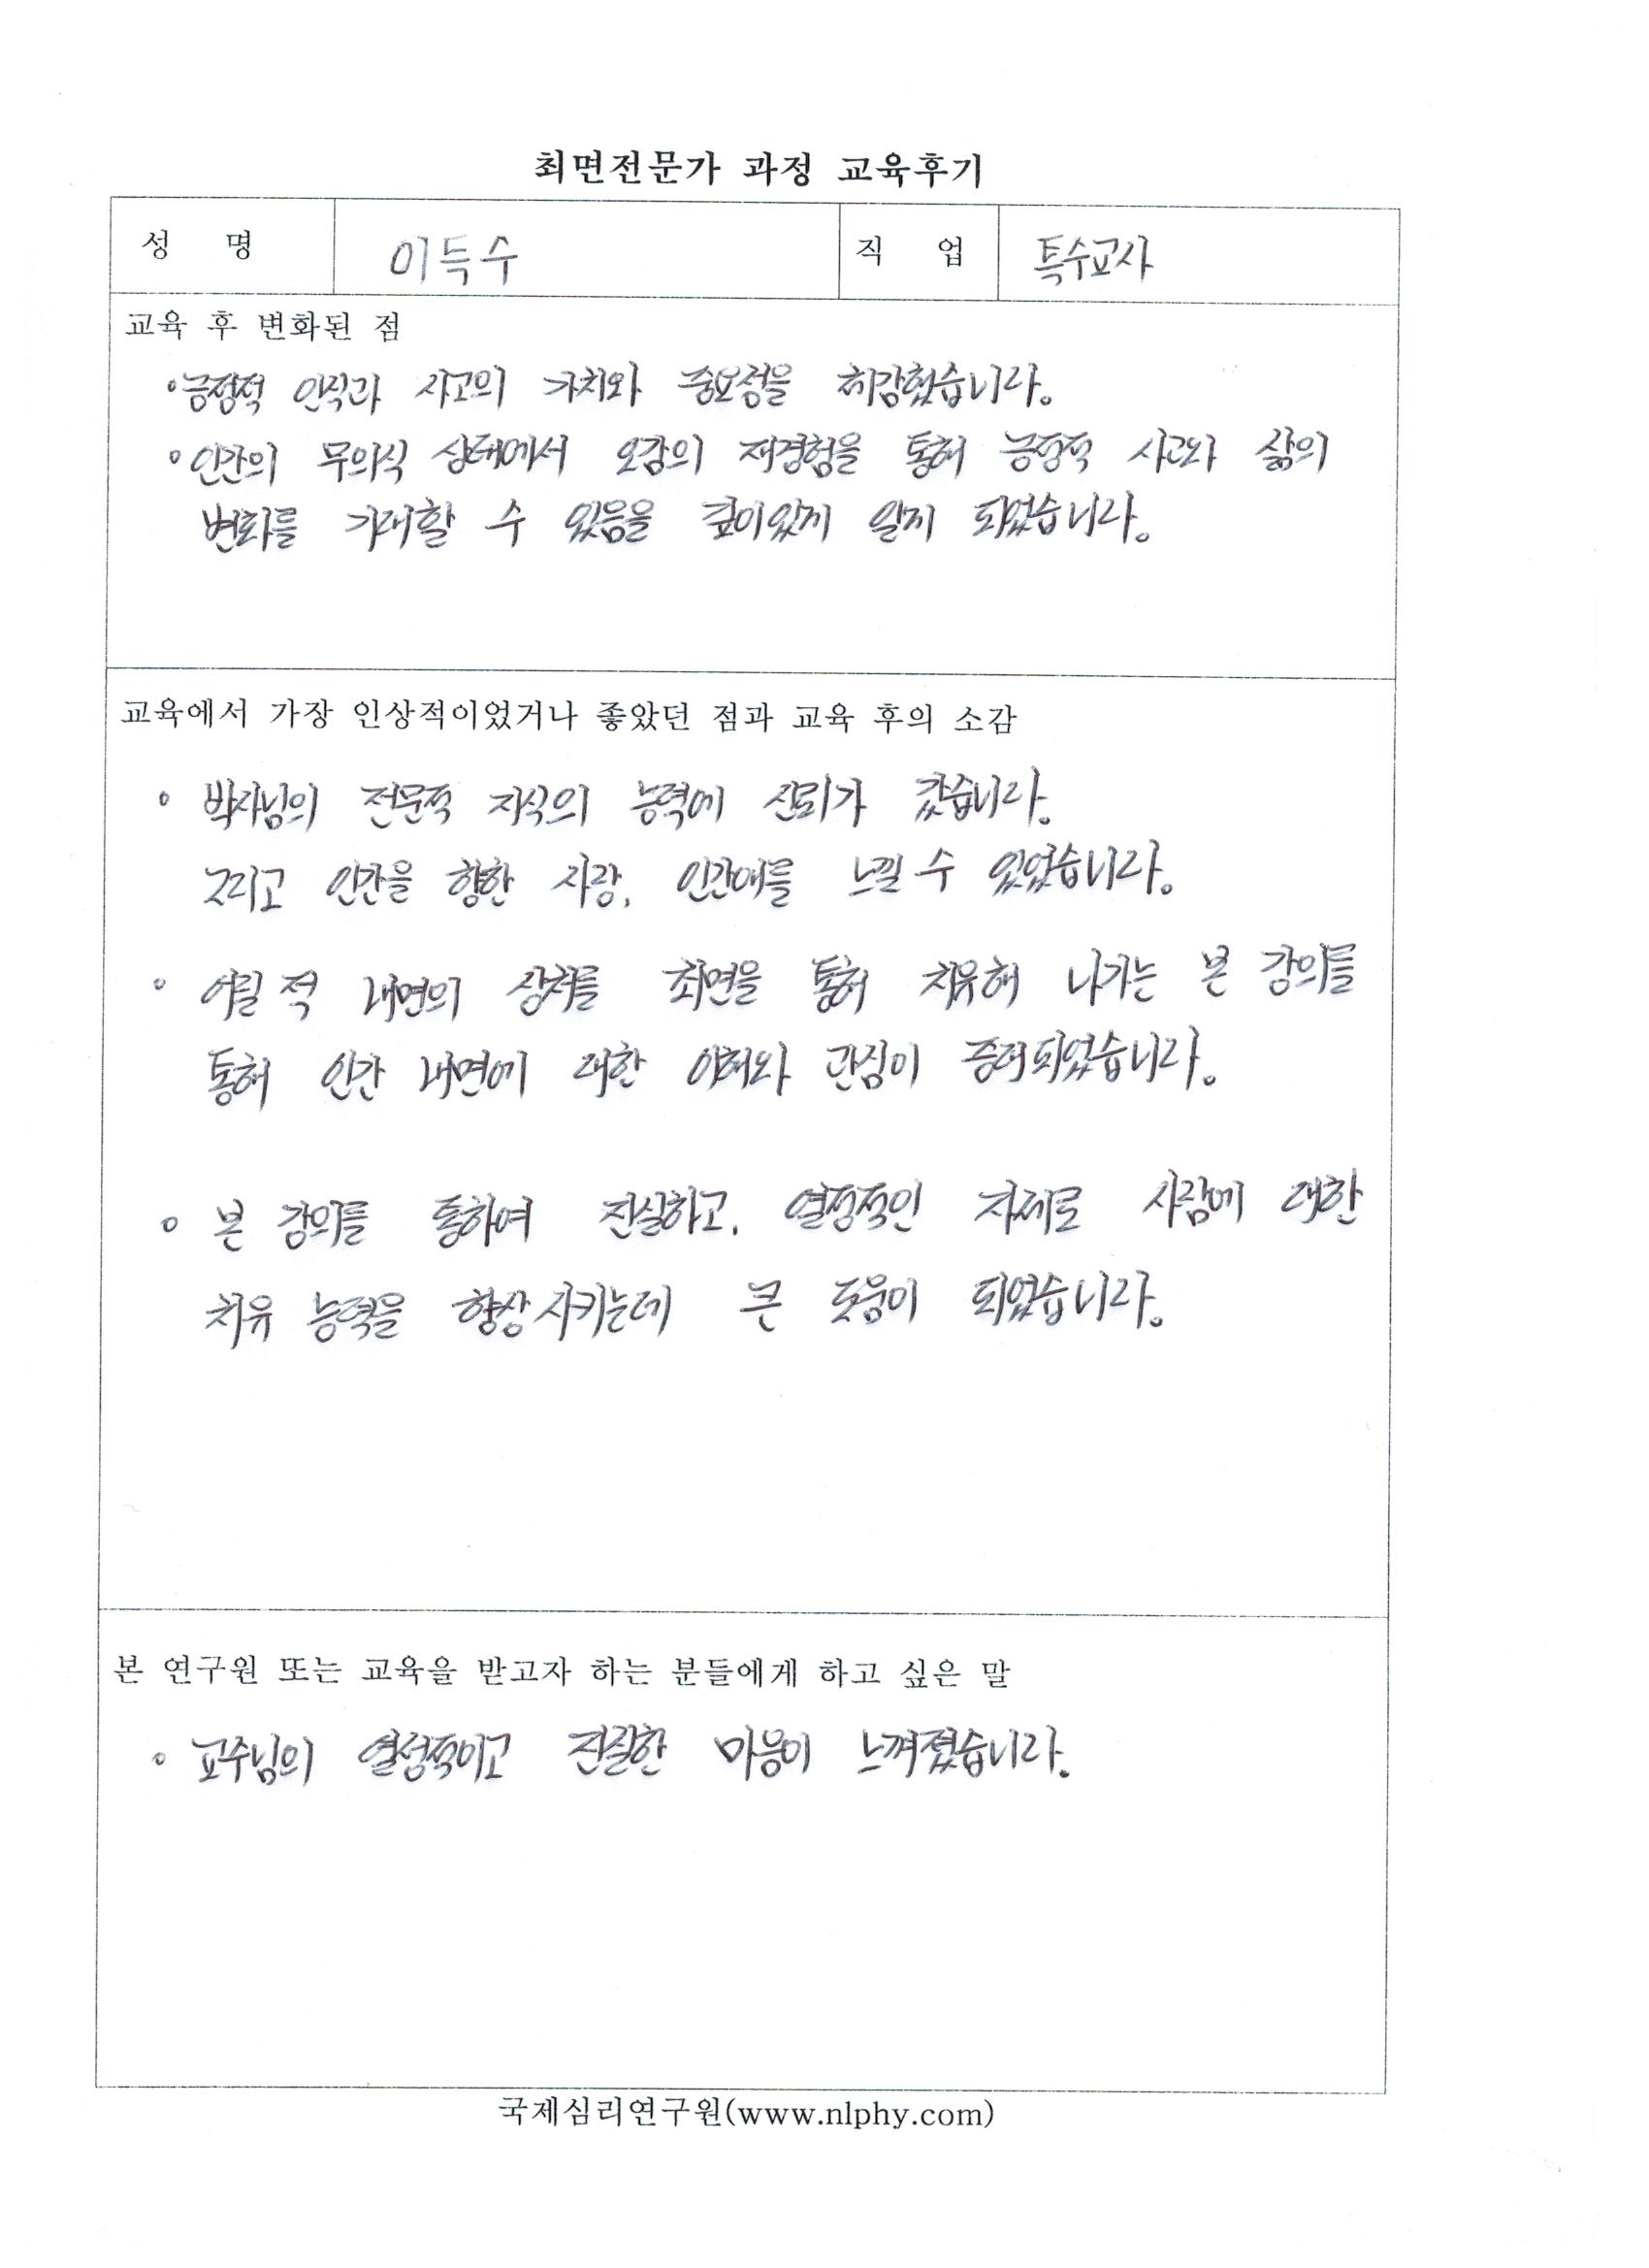 최면전문가 과정 교육후기
성 명 이득수 직 업 특수교사
교육 후 변화된 점
• 긍정적 인식과 사고의 가치와 중요성을 실감했습니다.
• 인간의 무의식 상태에서 오감의 재경험을 통해 긍정적 사고와 삶의
변화를 기대할 수 있음을 깊이있게 알게 되었습니다.
교육에서 가장 인상적이었거나 좋았던 점과 교육 후의 소감
• 박사님의 전문적 지식의 능력에 신뢰가 갔습니다.
그리고 인간을 향한 사랑, 인간애를 느낄 수 있었습니다.
• 어릴 적 내면의 상처를 최면을 통해 치유해 나가는 본 강의를
통해 인간 내면에 대한 이해와 관심이 증대되었습니다.
• 본 강의를 통하여 진실하고, 열정적인 자세로 사람에 대한
치유 능력을 향상시키는데 큰 도움이 되었습니다.
본 연구원 또는 교육을 받고자 하는 분들에게 하고 싶은 말
• 교수님의 열성적이고 진실한 마음이 느껴졌습니다.
국제심리연구원(www.nlphy.com)